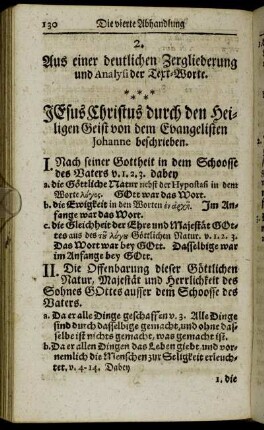 130 Die vierte Abhandlung
2.
Aus einer deutlichen Zergliederung
und Analysi der Text-Worte.
* * * *
JEsus Christus durch den Hei-
ligen Geist von dem Evangelisten
Johanne beschrieben.
I. Nach seiner Gottheit in dem Schoosse
des Vaters v. 1. 2. 3. dabey
a. die Göttliche Natur nebst der Hypostasi in dem
Worte λόγος. GOtt war das Wort.
b. die Ewigkeit in den Worten ἐν ἀρχῇ. Im An-
fange war das Wort.
c. die Gleichheit der Ehre und Majestät GOt-
tes aus des τοῦ λόγου Göttlichen Natur. v. 1. 2. 3.
Das Wort war bey GOtt. Dasselbige war
im Anfange bey GOtt.
II. Die Offenbarung dieser Göttlichen
Natur, Majestät und Herrlichkeit des
Sohnes GOttes ausser dem Schoosse des
Vaters.
a. Da er alle Dinge geschaffen v. 3. Alle Dinge
sind durch dasselbige gemacht, und ohne das-
selbe ist nichts gemacht, was gemacht ist.
b. Da er allen Dingen das Leben giebt, und vor-
nemlich die Menschen zur Seligkeit erleuch-
tet, v. 4-14. Dabey
1. die